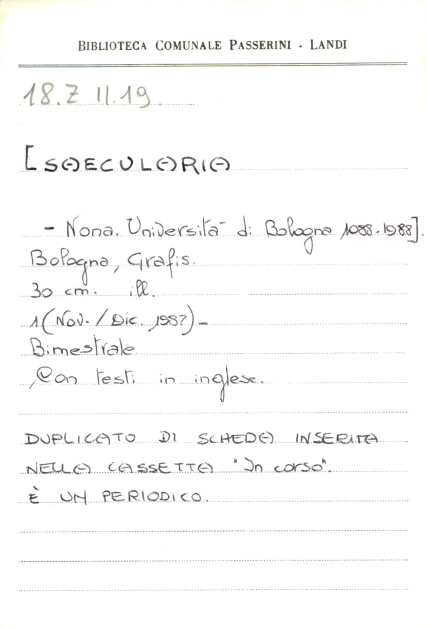 BIBLIOTECA COMUNALE PASSERINI - LANDI
18.Z II.19
[SAECULARIA
- Nona. Università di Bologna 1088-1988].
Bologna, Grafis.
30 cm. ill.
1 (Nov. / Dic. 1987) -
Bimestrale
Con testi in inglese.
DUPLICATO DI SCHEDA INSERITA
NELLA CASSETTA "In corso".
È UN PERIODICO.